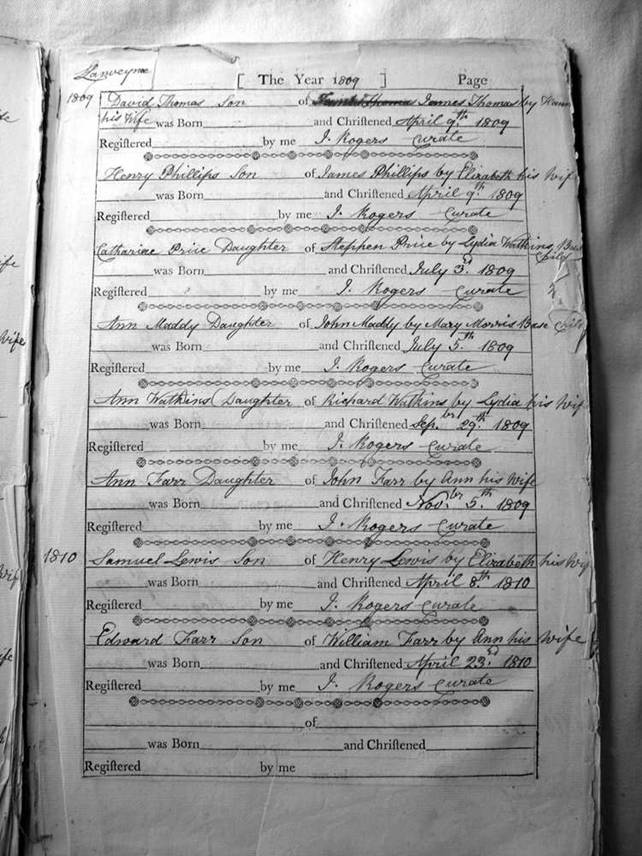 Lanveynoe
[ The Year 1809 ] Page
1809 David Thomas Son of James Thomas by Hann
his Wife was Born and Christened April 9th. 1809
Registered by me J. Rogers Curate
Henry Phillips Son of James Phillips by Elizabeth his Wife
was Born and Christened April 9th. 1809
Registered by me J. Rogers Curate
Catharine Price Daughter of Stephen Price by Lydia Watkins Base
Child
was Born and Christened July 3d. 1809
Registered by me J. Rogers Curate
Ann Maddy Daughter of John Maddy by Mary Morris Base Child
was Born and Christened July 5th. 1809
Registered by me J. Rogers Curate
Ann Watkins Daughter of Richard Watkins by Lydia his Wif
was Born and Christened Sep.br 29th. 1809
Registered by me J. Rogers Curate
Ann Farr Daughter of John Farr by Ann his Wife
was Born and Christened Nov.br 5th. 1809
Registered by me J. Rogers Curate
1810 Samuel Lewis Son of Henry Lewis by Elizabeth his Wif
was Born and Christened April 8th. 1810
Registered by me J. Rogers Curate
Edward Farr Son of William Farr by Ann his Wife
was Born and Christened April 23d. 1810
Registered by me J. Rogers Curate
of
was Born and Christened
Registered by me